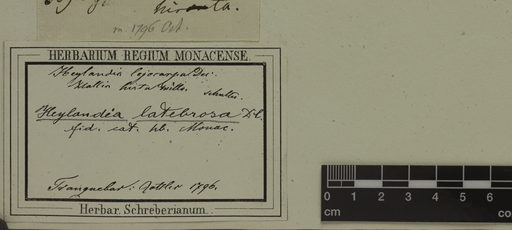 hirsuta.
m. 1796 Oct.
HERBARIUM REGIUM MONACENSE.
Heylandia leiocarpa Dec.
hirta Willd.
Heylandia latebrosa DC.
fid. cat. hb. Monac.
Tranquebar: Rottler 1796.
Herbar. Schreberianum.
0 1 2 3 4 5 6
cm